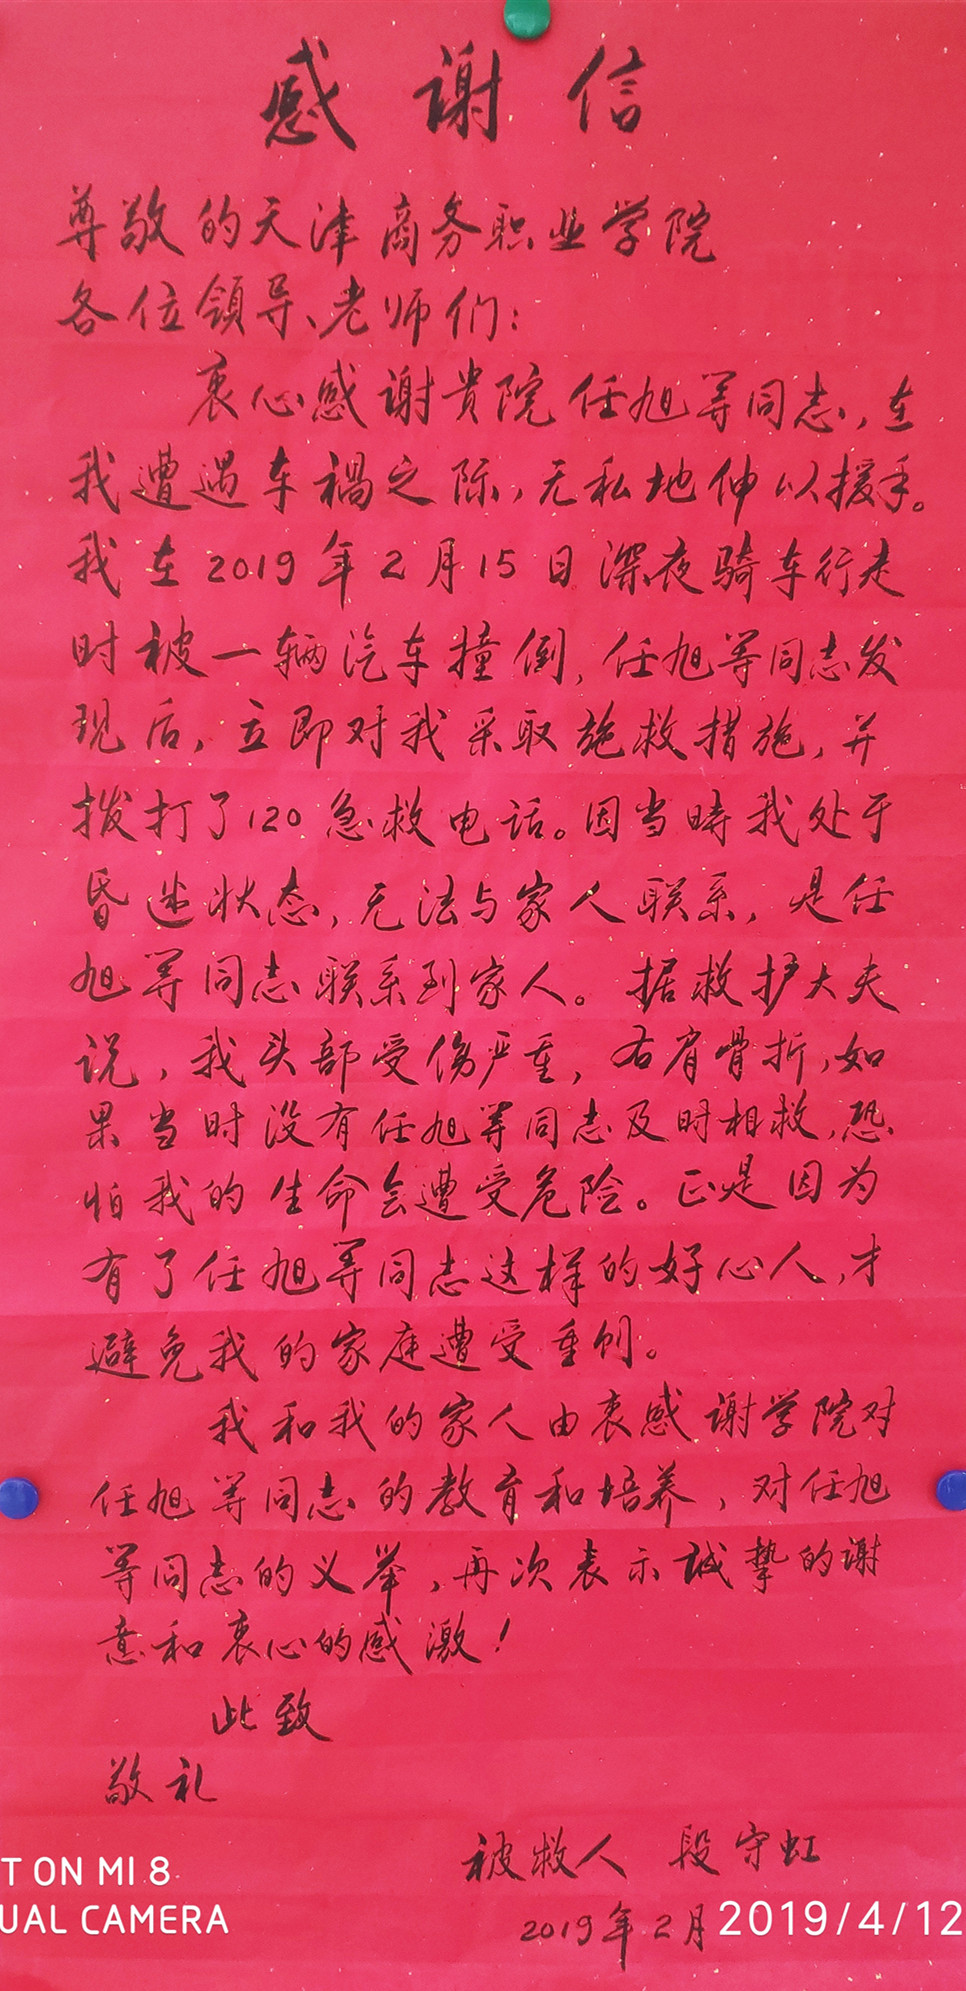 感谢信
尊敬的天津商务职业学院
各位领导、老师们：
衷心感谢贵院任旭等同志，在
我遭遇车祸之际，无私地伸以援手。
我在2019年2月15日深夜骑车行走
时被一辆汽车撞倒，任旭等同志发
现后，立即对我采取施救措施，并
拨打了120急救电话。因当時我处于
昏迷状态，无法与家人联系，是任
旭等同志联系到家人。据救护大夫
说，我头部受伤严重，右肩骨折，如
果当时没有任旭等同志及时相救，恐
怕我的生命会遭受危险。正是因为
有了任旭等同志这样的好心人，才
避免我的家庭遭受重创。
我和我的家人由衷感谢学院对
任旭等同志的教育和培养，对任旭
等同志的义举，再次表示诚挚的谢
意和衷心的感激！
此致
敬礼
被救人 段守虹
2019年2月
T ON MI 8
UAL CAMERA
2019/4/12